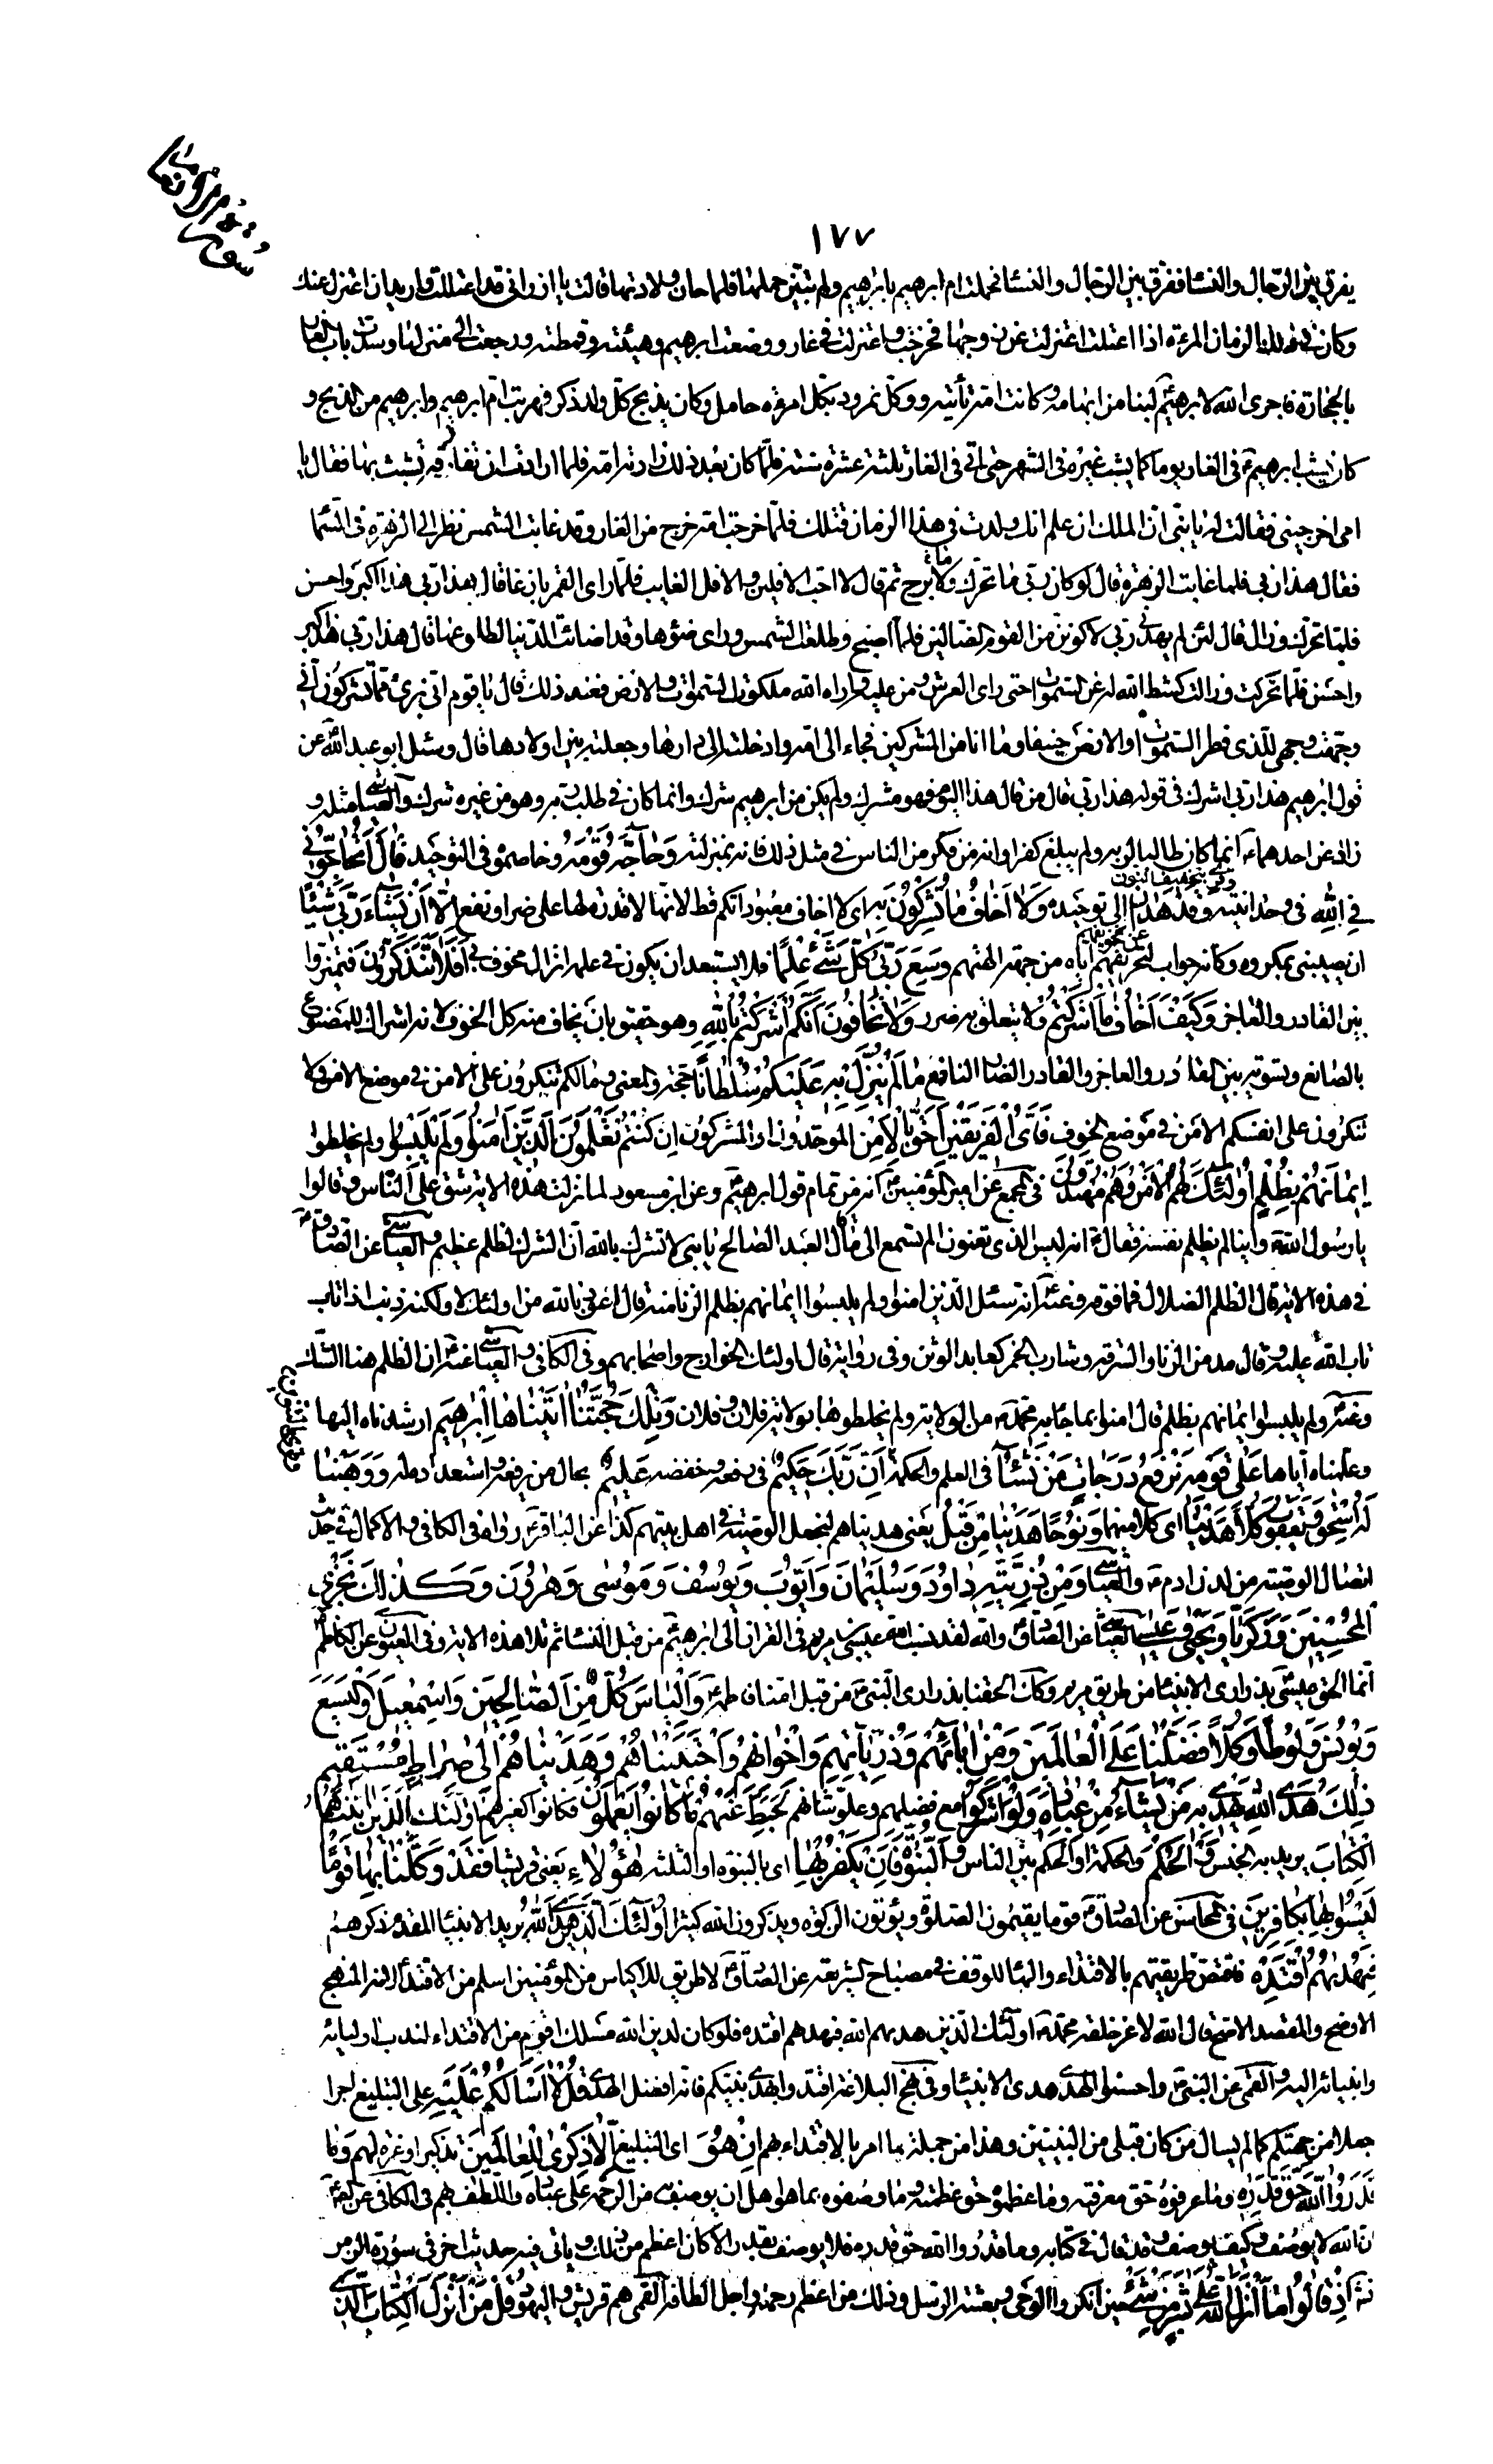 سورة الأنعام
١٧٧
يفرق بين الرّجال والنساء ففرق بين الرّجال والنساء فحملت ام ابرهيم بابرهيم ولم يتبيّن حملها فلما حان ولادتها قالت يا ازر اني قد اعتللت واريد ان اعتزل عنك
وكان في ذلك الزمان المرءة اذا اعتلت اعتزلت عن زوجها فخرجت واعتزلت في غار ووضعت ابرهيم وهيئته وقمطته ورجعت الى منزلها وسدت باب الغار
بالحجارة فاجرى الله لابرهيم لبنا من ابهامه وكانت امه تأتيه ووكّل نمرود بكل امرءة حامل وكان يذبح كلّ ولد ذكر فهربت امّ ابرهيم وابرهيم من الذبح و
كان يشب ابرهيم في الغار يوما كما يشب غيره في الشهر حتى اتى في الغار ثلثة عشرة سنة فلمّا كان بعد ذلك زارته امه فلما ارادت ان تفارقه تشبث بها فقال يا
امى اخرجيني فقالت له يا بنيّ انّ الملك ان علم انك ولدت في هذا الزمان قتلك فلمّا خرجت امه خرج من الغار وقد غابت الشمس نظر الى الزهرة في السّما
فقال هذا ربي فلما غابت الزهرة قال لو كان ربي ما تحرّك ولا برح ثم قال لا احب الافلين والافل الغايب فلمّا راى القمر بازغا قال هذا ربي هذا اكبر واحسن
فلمّا تحرّك وزال قال لئن لم يهدني ربي لاكونن من القوم الضالين فلمّا اصبح وطلعت الشمس وراى ضوئها وقد اضائت الدّنيا لطلوعها قال هذا ربّي هذا اكبر
واحسن فلمّا تحركت وزالت كشط الله له عن السّموات حتى راى العرش ومن عليه واراه الله ملكوت السّموات والارض فعند ذلك قال يا قوم اني برئ ممّا تشركون اني
وجّهت وجهى للّذى فطر السّموات والارض حنيفا وما انا من المشركين فجاء الى امه وادخلته الى دارها وجعلته بين اولادها قال وسئل ابو عبد الله عن
قول ابرهيم هذا ربي اشرك في قوله هذا ربي قال من قال هذا اليوم فهو مشرك ولم يكن من ابرهيم شرك وانما كان في طلب ربه وهو من غيره شرك والعياشي مثله و
زاد عن احدهما انما كان طالبا لربه ولم يبلغ كفرا وانه من فكر من الناس في مثل ذلك فانه بمنزلته وَحَاجَّهُ قَوْمُهُ وخاصموه في التوحيد قَالَ أَتُحَاجُّونِّي
وقرئ بتخفيف النون
فِي اللَّهِ في وحدانيته وَقَدْ هَدَانِ الى توحيده وَلَا أَخَافُ مَا تُشْرِكُونَ بِهِ اى لا اخاف معبوداتكم قط لانّها لا قدرة لها على ضر او نفع إِلَّا أَنْ يَشَاءَ رَبِّي شَيْئًا
ان يصيبني بمكروه وكانه جواب لتخويفهم اياه من جهة الهتهم وَسِعَ رَبِّي كُلَّ شَيْءٍ عِلْمًا فلا يستبعد ان يكون في علمه انزال مخوف بي أَفَلَا تَتَذَكَّرُونَ فتميّزوا
بين القادر والعاجز وَكَيْفَ أَخَافُ مَا أَشْرَكْتُمْ ولا يتعلق به ضرر وَلَا تَخَافُونَ أَنَّكُمْ أَشْرَكْتُمْ بِاللَّهِ وهو حقيق بان يخاف منه كل الخوف لانه اشراك للمصنوع
بالصّانع وتسوية بين المقدور والعاجز والقادر الضار النافع مَا لَمْ يُنَزِّلْ بِهِ عَلَيْكُمْ سُلْطَانًا حجة والمعنى وما لكم تنكرون على الامن في موضع الامن ولا
تنكرون على انفسكم الامن في موضع الخوف فَأَيُّ الْفَرِيقَيْنِ أَحَقُّ بِالْأَمْنِ الموحّدون او المشركون إِنْ كُنْتُمْ تَعْلَمُونَ الَّذِينَ آمَنُوا وَلَمْ يَلْبِسُوا ولم يخلطوا
إِيمَانَهُمْ بِظُلْمٍ أُولَئِكَ لَهُمُ الْأَمْنُ وَهُمْ مُهْتَدُونَ في المجمع عن امير المؤمنين انه من تمام قول ابرهيم وعن ابن مسعود لما نزلت هذه الاية شق على النّاس وقالوا
يا رسول الله واينا لم يظلم نفسه فقال انه ليس الذى تعنون الم تسمع الى ما قال العبد الصالح يا بني لا تشرك بالله انّ الشرك لظلم عظيم والعياشي عن الصّادق
في هذه الاية قال الظلم الضلال فما فوقه وعنه انه سئل الّذين امنوا ولم يلبسوا ايمانهم بظلم الزنا منه قال اعوذ بالله من اولئك لا ولكنه ذنب اذا تاب
تاب الله عليه وقال مدمن الزنا والسّرقة وشارب الخمر كعابد الوثن وفي رواية قال اولئك الخوارج واصحابهم وفي الكافي والعياشي عنه ان الظلم هنا الشك
وعنه ولم يلبسوا ايمانهم بظلم قال امنوا بما جاء به محمد من الولاية ولم يخلطوها بولاية فلان وفلان وَتِلْكَ حُجَّتُنَا آتَيْنَاهَا إِبْرَاهِيمَ ارشدناه اليها
وعلمناه اياها عَلَى قَوْمِهِ نَرْفَعُ دَرَجَاتٍ مَنْ نَشَاءُ في العلم والحكمة إِنَّ رَبَّكَ حَكِيمٌ في رفعه وخفضه عَلِيمٌ بحال من يرفعه واستعداده له وَوَهَبْنَا
وقرئ بالتنوين
لَهُ إِسْحَقَ وَيَعْقُوبَ كُلًّا هَدَيْنَا اى كلا منهما وَنُوحًا هَدَيْنَا مِنْ قَبْلُ يعنى هديناهم لنجعل الوصيّة في اهل بيتهم كذا عن الباقر رواه في الكافي والاكمال في حديث
اتصال الوصية من لدن ادم والعياشي وَمِنْ ذُرِّيَّتِهِ دَاوُدَ وَسُلَيْمَانَ وَأَيُّوبَ وَيُوسُفَ وَمُوسَى وَهَرُونَ وَكَذَلِكَ نَجْزِي
الْمُحْسِنِينَ وَزَكَرِيَّا وَيَحْيَى وَعِيسَى العياشي عن الصّادق والله لقد نسب الله عيسى بن مريم في القران الى ابرهيم من قبل النساء ثم تلا هذه الاية وفي العيون عن الكاظم
انّما الحق عيسى بذرارى الانبياء من طريق مريم وكذلك الحقنا بذرارى النّبي من قبل امنا فاطمة وَإِلْيَاسَ كُلٌّ مِنَ الصَّالِحِينَ وَإِسْمَعِيلَ وَالْيَسَعَ
وَيُونُسَ وَلُوطًا وَكُلًّا فَضَّلْنَا عَلَى الْعَالَمِينَ وَمِنْ آبَائِهِمْ وَذُرِّيَّاتِهِمْ وَإِخْوَانِهِمْ وَاجْتَبَيْنَاهُمْ وَهَدَيْنَاهُمْ إِلَى صِرَاطٍ مُسْتَقِيمٍ
ذَلِكَ هُدَى اللَّهِ يَهْدِي بِهِ مَنْ يَشَاءُ مِنْ عِبَادِهِ وَلَوْ أَشْرَكُوا مع فضلهم وعلوّ شانهم لَحَبِطَ عَنْهُمْ مَا كَانُوا يَعْمَلُونَ فكانوا كغيرهم أُولَئِكَ الَّذِينَ آتَيْنَاهُمُ
الْكِتَابَ يريد به الجنس وَالْحُكْمَ والحكمة او الحكم بين الناس وَالنُّبُوَّةَ فَإِنْ يَكْفُرْ بِهَا اى بالنبوّة او الثلثة هَؤُلَاءِ يعنى قريشا فَقَدْ وَكَّلْنَا بِهَا قَوْمًا
لَيْسُوا بِهَا بِكَافِرِينَ في المحاسن عن الصّادق قوما يقيمون الصّلوة ويؤتون الزكوة ويذكرون الله كثيرا أُولَئِكَ الَّذِينَ هَدَى اللَّهُ يريد الانبياء المقدم ذكرهم
فَبِهُدَاهُمُ اقْتَدِهْ فاختص طريقتهم بالاقتداء والهاء للوقف في مصباح الشريعة عن الصّادق لا طريق للاكياس من المؤمنين اسلم من الاقتداء لانه المنهج
الاوضح والمقصد الاصح قال الله لاعز خلقه محمد اولئك الّذين هديهم الله فبهداهم اقتده فلو كان لدين الله مسلك اقوم من الاقتداء لندب اوليائه
وانبيائه اليه والقمي عن النبي واحسن الهدى هدى الانبياء وفي نهج البلاغة اقتدوا بهدى نبيّكم فانه افضل الهدى قُلْ لَا أَسْأَلُكُمْ عَلَيْهِ على التبليغ أجرا
جعلا من جهتكم كما لم يسال من كان قبلى من النبيّين وهذا من جملة ما امر بالاقتداء بهم إِنْ هُوَ اى التبليغ إِلَّا ذِكْرَى لِلْعَالَمِينَ تذكيرا وعظة لهم وَمَا
قَدَرُوا اللَّهَ حَقَّ قَدْرِهِ وما عرفوه حق معرفته وما عظموه حق عظمته وما وصفوه بما هو اهل ان يوصف به من الرّحمة على عباده واللطف بهم في الكافي عن
ان الله لا يوصف وكيف يوصف وقد قال في كتابه وما قدروا الله حق قدره فلا يوصف بقدر الا كان اعظم من ذلك وياتي فيه حديث اخر في سورة الزمر
إِذْ قَالُوا مَا أَنْزَلَ اللَّهُ عَلَى بَشَرٍ مِنْ شَيْءٍ حين انكروا الوحى وبعثة الرّسل وذلك من اعظم رحمته واجل الطافه القمي هم قريش واليهود قُلْ مَنْ أَنْزَلَ الْكِتَابَ الَّذِي